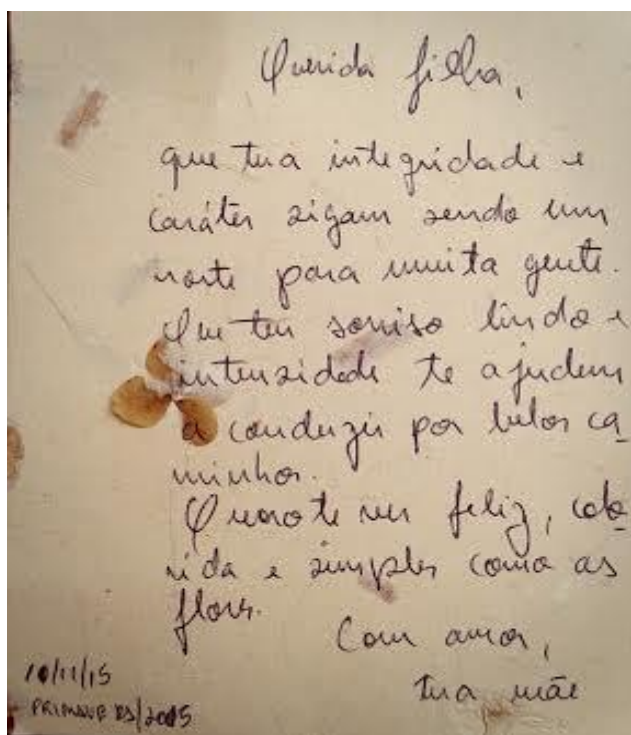 Querida filha,
que tua integridade e
caráter sigam sendo um
norte para muita gente.
Que teu sorriso lindo e
intensidade te ajudem
a conduzir por belos ca_
minhos.
Quero te ver feliz, colo_
rida e simples como as
flores.
Com amor,
tua mãe
10/11/15
/2015